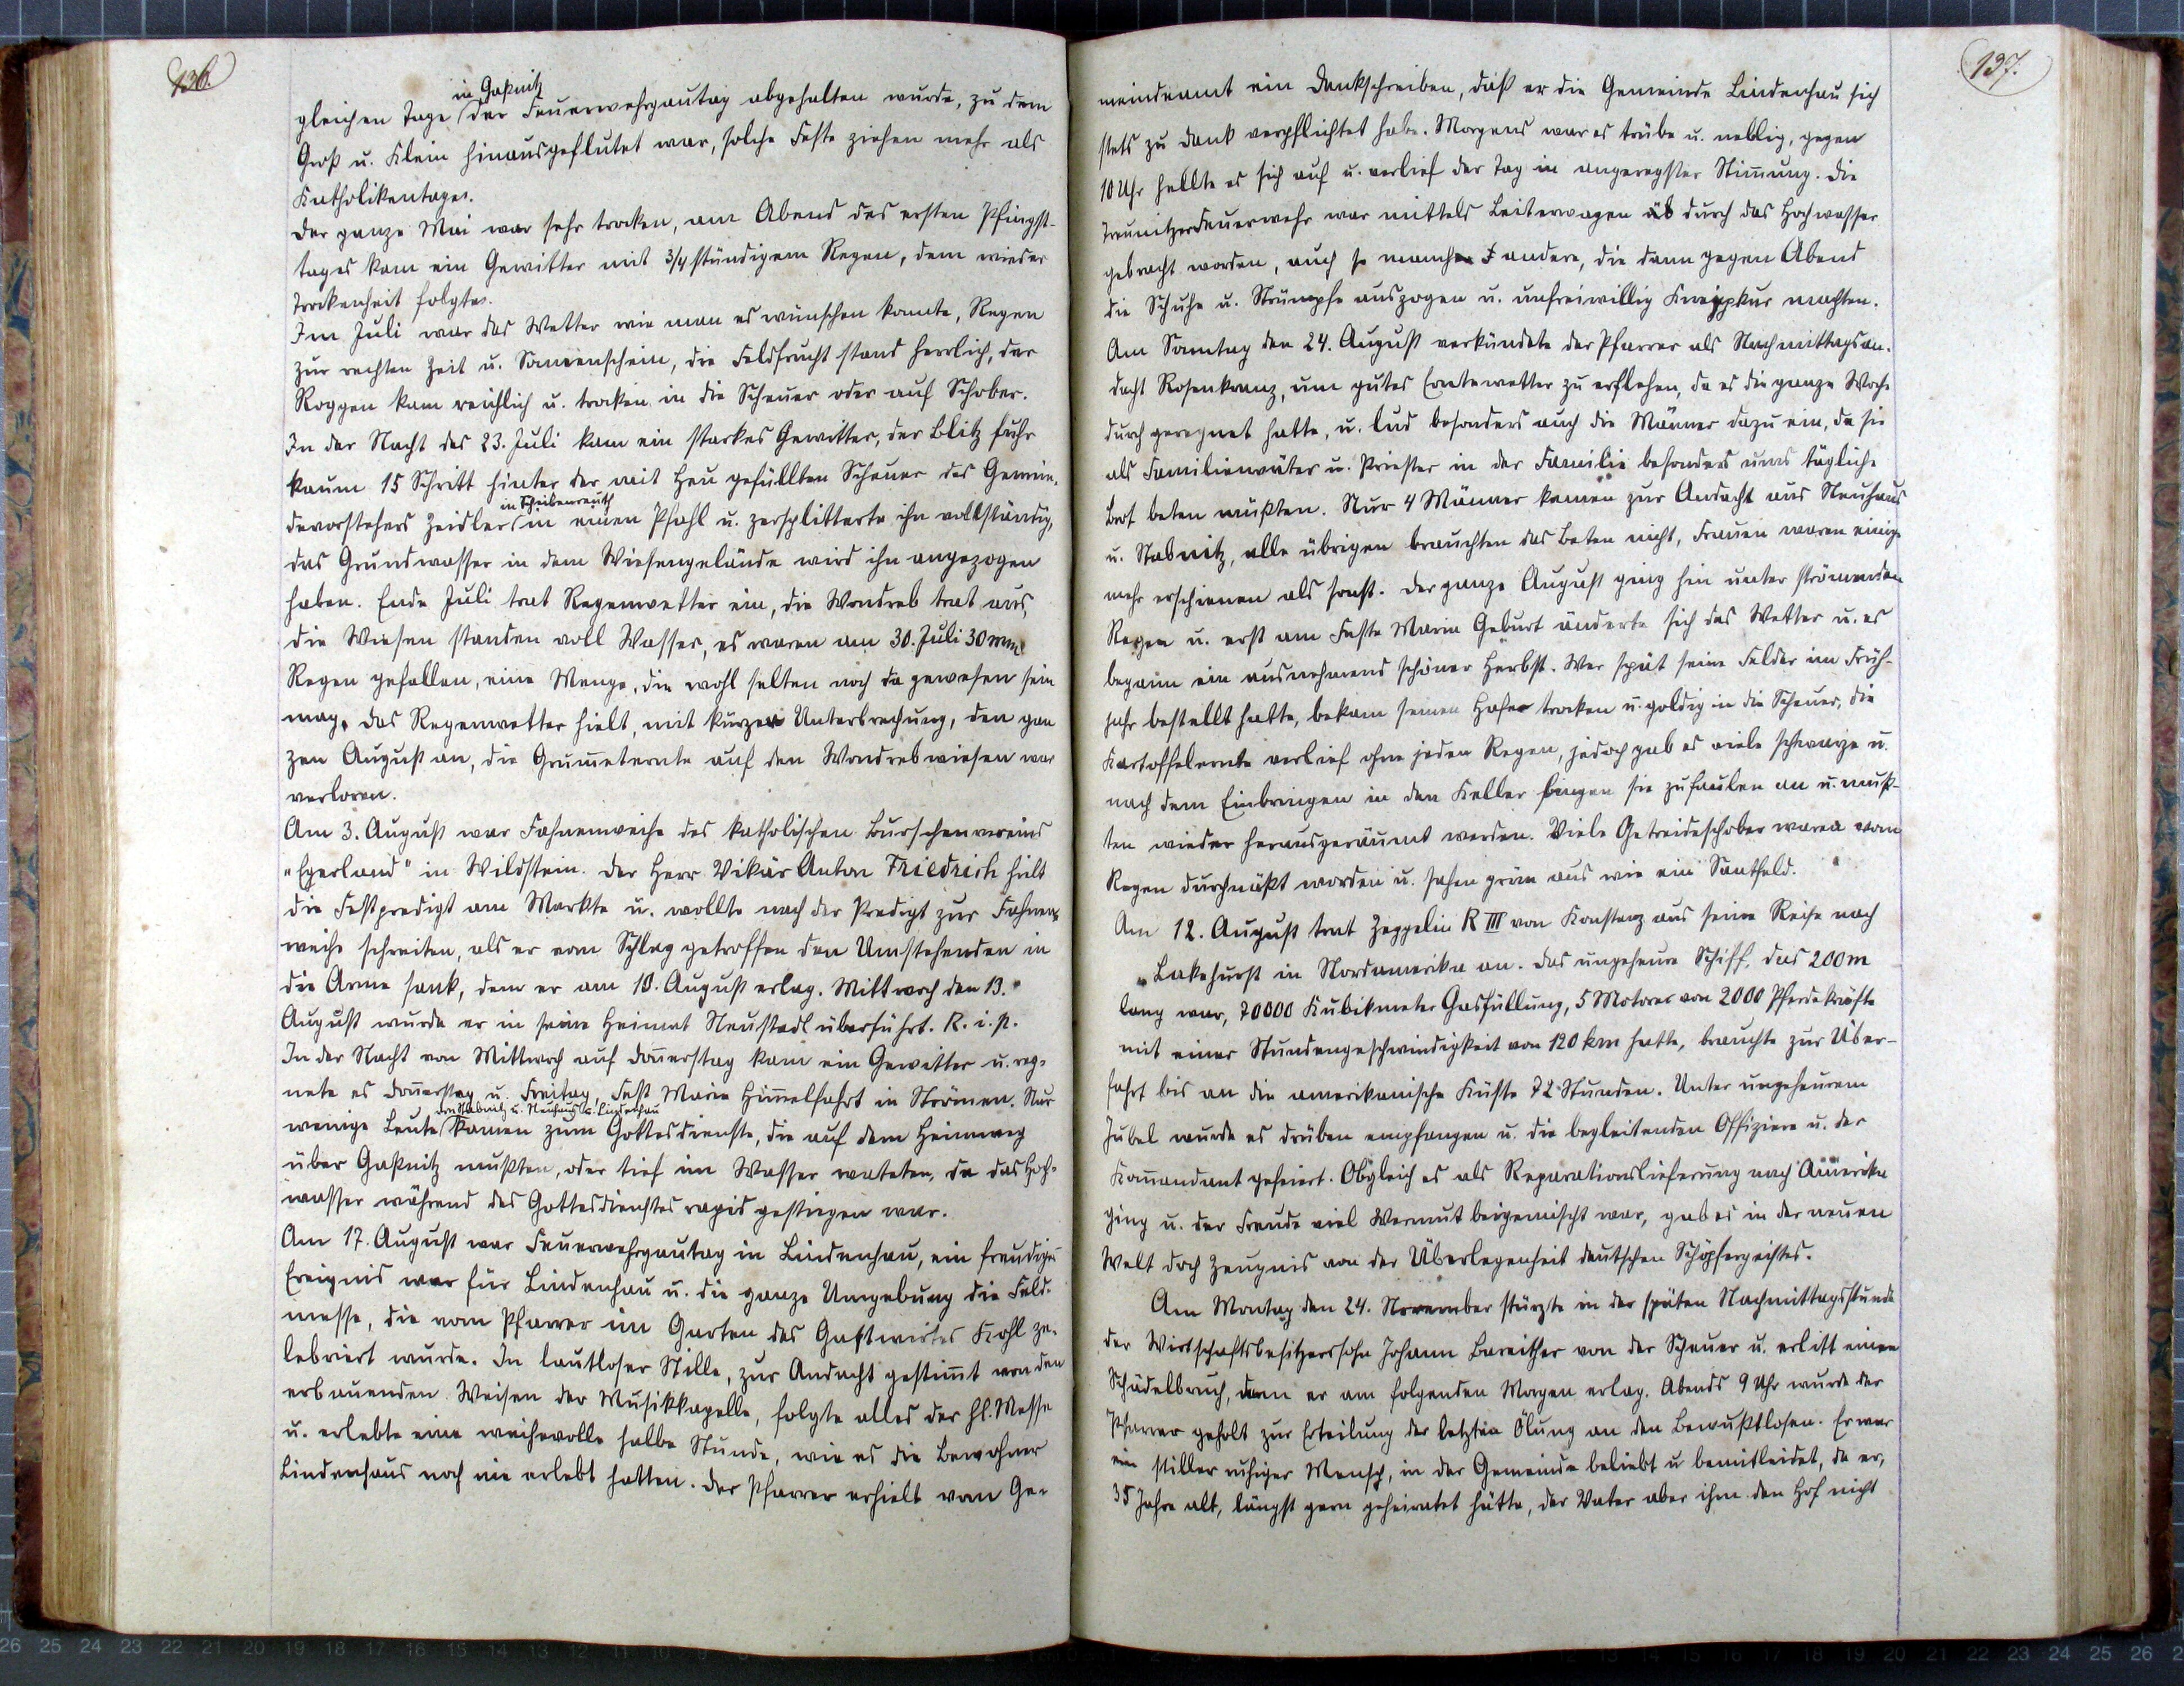 136.
in Gaßnitz
gleichen Tage der Feuerwehrgautag abgehalten wurde, zu dem
Groß u. Klein hinausgeflutet war, solche Feste ziehen mehr als
Katholikentage.
Der ganze Mai war sehr trocken, am Abend des ersten Pfingst-
tages kam ein Gewitter mit 3/4 stündigem Regen, dem wieder
Trockenheit folgte.
Im Juli war das Wetter wie man es wünschen konnte, Regen
zur rechten Zeit u. Sonnenschein, die Feldfrucht stand herrlich, der
Roggen kam reichlich u. trocken in die Scheuer oder auf Schober.
In der Nacht des 23. Juli kam ein starkes Gewitter, der Blitz fuhr
kaum 15 Schritt hinter der mit Heu gefüllten Scheuer des Gemein-
in Scheibenreuth
devorstehers Zeidler in einen Pfahl u. zersplitterte ihn vollständig,
das Grundwasser in dem Wiesengelände wird ihn angezogen
haben. Ende Juli trat Regenwetter ein, die Wondreb trat aus,
die Wiesen standen voll Wasser, es waren am 30. Juli 30 mm
Regen gefallen, eine Menge, die wohl selten noch da gewesen sein
mag. Das Regenwetter hielt, mit kurzer Unterbrechung, den gan
zen August an, die Grum̅eternte auf den Wondrebwiesen war
verloren.
Am 3. August war Fahnenweihe des katholischen Burschenvereins
"Egerland" in Wildstein. Der Herr Vikär Anton Friedrich hielt
die Festpredigt am Markte u. wollte nach der Predigt zur Fahnen
weihe schreiten, als er vom Schlag getroffen den Umstehenden in
die Arme sank, dem er am 10. August erlag. Mittwoch den 13.
August wurde er in seine Heimat Neustadl überführt. R. i. p.
In der Nacht von Mittwoch auf Don̅erstag kam ein Gewitter u. reg-
nete es Don̅erstag u. Freitag, Fest Maria Him̅elfahrt in Strömen. Nur
von Stabnitz u. Neuhaus u. Lindenhau
wenige Leute kamen zum Gottesdienste, die auf dem Heimweg
über Gaßnitz mußten, oder tief im Wasser wateten, da das Hoch-
wasser während des Gottesdienstes rapid gestiegen war.
Am 17. August war Feuerwehrgautag in Lindenhau, ein freudiges
Ereignis war für Lindenhau u. die ganze Umgebung die Feld-
messe, die vom Pfarrer im Garten des Gastwirtes Kohl ze-
lebriert wurde. In lautloser Stille, zur Andacht gestim̅t von den
erbauenden Weisen der Musikkapelle, folgte alles der hl. Messe
u. erlebte eine weihevolle halbe Stunde, wie es die Bewohner
Lindenhaus noch nie erlebt hatten. Der Pfarrer erhielt vom Ge-
137.
meindeamt ein Dankschreiben, daß er die Gemeinde Lindenhau sich
stets zu Dank verpflichtet habe. Morgens war es trübe u. neblig, gegen
10 Uhr hellte es sich auf u. verlief der Tag in angeregster Stim̅ung. Die
Treunitzer Feuerwehr war mittels Leiterwagen durch das Hochwasser
gebracht worden, auch so manche andere, die dann gegen Abend
die Schuhe u. Strümpfe auszogen u. unfreiwillig Kneippkur machten.
Am Sonntag den 24. August verkündete der Pfarrer als Nachmittagsan-
dacht Rosenkranz, um gutes Erntewetter zu erflehen, da es die ganze Woche
durch geregnet hatte, u. lud besonders auch die Männer dazu ein, da sie
als Familienväter u. Priester in der Familie besonders ums tägliche
Brot beten müßten. Nur 4 Männer kamen zur Andacht aus Neuhaus
u. Stabnitz, alle übrigen brauchten das Beten nicht, Frauen waren einige
mehr erschienen als sonst. Der ganze August ging hin unter strömenden
Regen u. erst am Feste Maria Geburt änderte sich das Wetter u. es
begann ein ausnehmend schöner Herbst. Wer spät seine Felder im Früh-
jahr bestellt hatte, bekam seinen Hafer trocken u. goldig in die Scheuer, die
Kartoffelernte verlief ohne jeden Regen, jedoch gab es viele schwarze u.
nach dem Einbringen in den Keller fingen sie zu faulen an u. muß-
ten wieder herausgeräumt werden. Viele Getreideschober waren vom
Regen durchnäßt worden u. sahen grün aus wie ein Saatfeld.
Am 12. August trat Zeppelin R III von Konstanz aus seine Reise nach
Lakehurst in Nordamerika an. Das ungeheure Schiff, das 200 m
lang war, 70000 Kubikmeter Gasfüllung, 5 Motores von 2000 Pferdekräfte
mit einer Stundengeschwindigkeit von 120 km hatte, brauchte zur Über-
fahrt bis an die amerikanische Küste 72 Stunden. Unter ungeheurem
Jubel wurde es drüben empfangen u. die begleitenden Offiziere u. der
Kom̅andant gefeiert. Obgleich es als Reparationslieferung nach Amerika
ging u. der Freude viel Wermut beigemischt war, gab es in der neuen
Welt doch Zeugnis von der Überlegenheit deutschen Schöpfergeistes.
Am Montag den 24. November stürzte in der späten Nachmittagsstunde
der Wirtschaftsbesitzerssohn Johann Bareither von der Scheuer u. erlitt einen
Schädelbruch, dem er am folgenden Morgen erlag. Abends 9 Uhr wurde der
Pfarrer geholt zur Erteilung der letzten Ölung an den Bewußtlosen. Er war
ein stiller ruhiger Mensch, in der Gemeinde beliebt u bemitleidet, da er,
35 Jahre alt, längst gern geheiratet hätte, der Vater aber ihm den Hof nicht